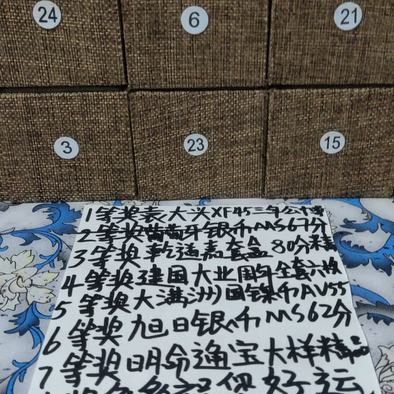 24 6 21
3 23 15
1等奖袁大头XF45三年公博
2等奖黄龙年银币MS67分
3等奖乾通嘉套盒80分精
4等奖建国大业周年全套六枚
5等奖大满洲国镍币AU55
6等奖旭日银币MS62分
7等奖明命通宝大样精品
好运